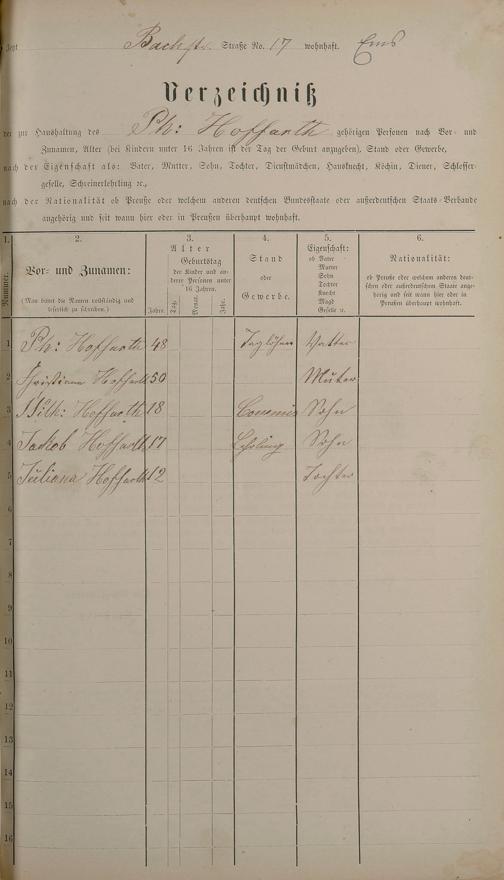 Jetzt Bachstr. Straße No. 17 wohnhaft. Ems
Verzeichniß
der zur Haushaltung des Ph: Hoffarth gehörigen Personen nach Vor- und
Zunamen, Alter (bei Kindern unter 16 Jahren ist der Tag der Geburt anzugeben), Stand oder Gewerbe,
nach der Eigenschaft als: Vater, Mutter, Sohn, Tochter, Dienstmädchen, Hausknecht, Köchin, Diener, Schlosser-
geselle, Schreinerlehrling ꝛc.,
nach der Nationalität ob Preuße oder welchem anderen deutschen Bundesstaate oder außerdeutschen Staats-Verbande
angehörig und seit wann hier oder in Preußen überhaupt wohnhaft.
1. 2. 3. 4. 5. 6.
Nummer.
Vor- und Zunamen:
(Man bittet die Namen vollständig und
leserlich zu schreiben.)
Alter
Geburtstag
der Kinder und an-
derer Personen unter
16 Jahren.
Jahre. Tag. Monat. Jahr.
Stand
oder
Gewerbe.
Eigenschaft:
ob Vater
Mutter
Sohn
Tochter
Knecht
Magd
Geselle ꝛc.
Nationalität:
ob Preuße oder welchem anderen deut-
schen oder außerdeutschen Staate ange-
hörig und seit wann hier oder in
Preußen überhaupt wohnhaft.
1 Ph: Hoffarth 48 Taglöhner Vatter
2 Christiane Hoffarth 50 Mutter
3 Wilh: Hoffarth 18 Commis Sohn
4 Jackob Hoffarth 17 Lehrling Sohn
5 Juliana Hoffarth 12 Tochter
6
7
8
9
10
11
12
13
14
15
16